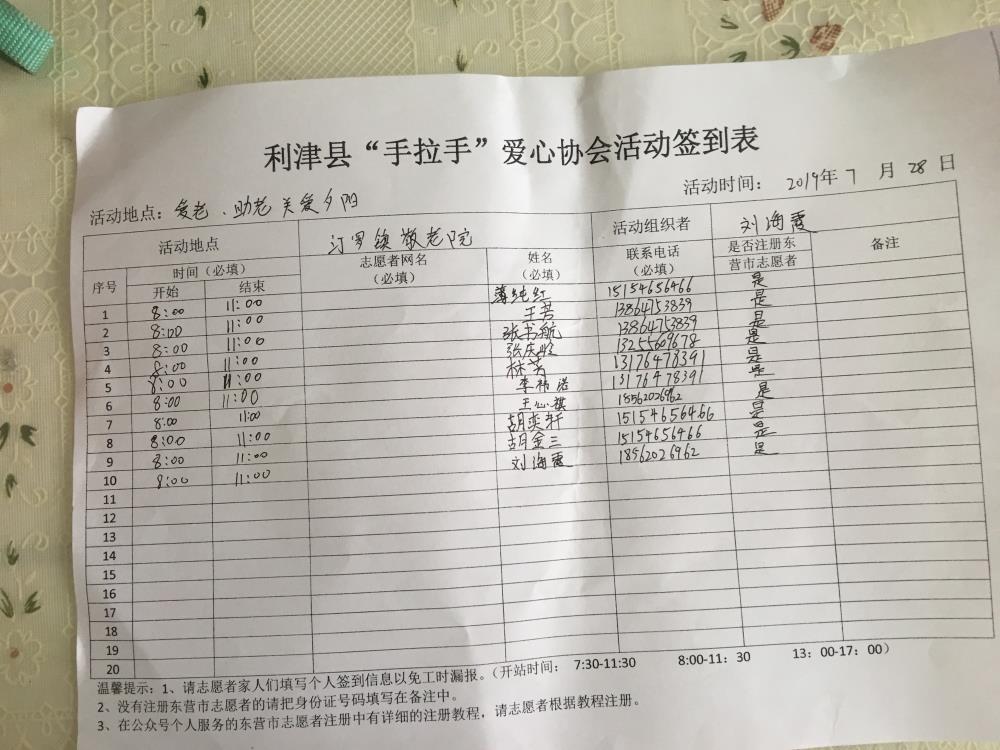 利津县“手拉手”爱心协会活动签到表
活动时间： 2019年 7 月 28 日
活动地点：爱老、助老 关爱夕阳
活动地点 汀罗镇敬老院 活动组织者 刘海霞
序号 时间（必填） 志愿者网名（必填） 姓名（必填） 联系电话（必填） 是否注册东营市志愿者 备注
开始 结束
1 8:00 11:00 薄纯红 15154656466 是
2 8:00 11:00 王芳 13864753839 是
3 8:00 11:00 张书航 13864753839 是
4 8:00 11:00 张庆 13255609678 是
5 8:00 11:00 林芳 13176478391 是
6 8:00 11:00 李祎诺 13176478391 是
7 8:00 11:00 王心祺 18562026962 是
8 8:00 11:00 胡奕轩 15154656466 是
9 8:00 11:00 胡金三 15154656466 是
10 8:00 11:00 刘海霞 18562026962 是
11
12
13
14
15
16
17
18
19
20
温馨提示：1、请志愿者家人们填写个人签到信息以免工时漏报。（开站时间： 7:30-11:30 8:00-11：30 13：00-17：00）
2、没有注册东营市志愿者的请把身份证号码填写在备注中。
3、在公众号个人服务的东营市志愿者注册中有详细的注册教程，请志愿者根据教程注册。